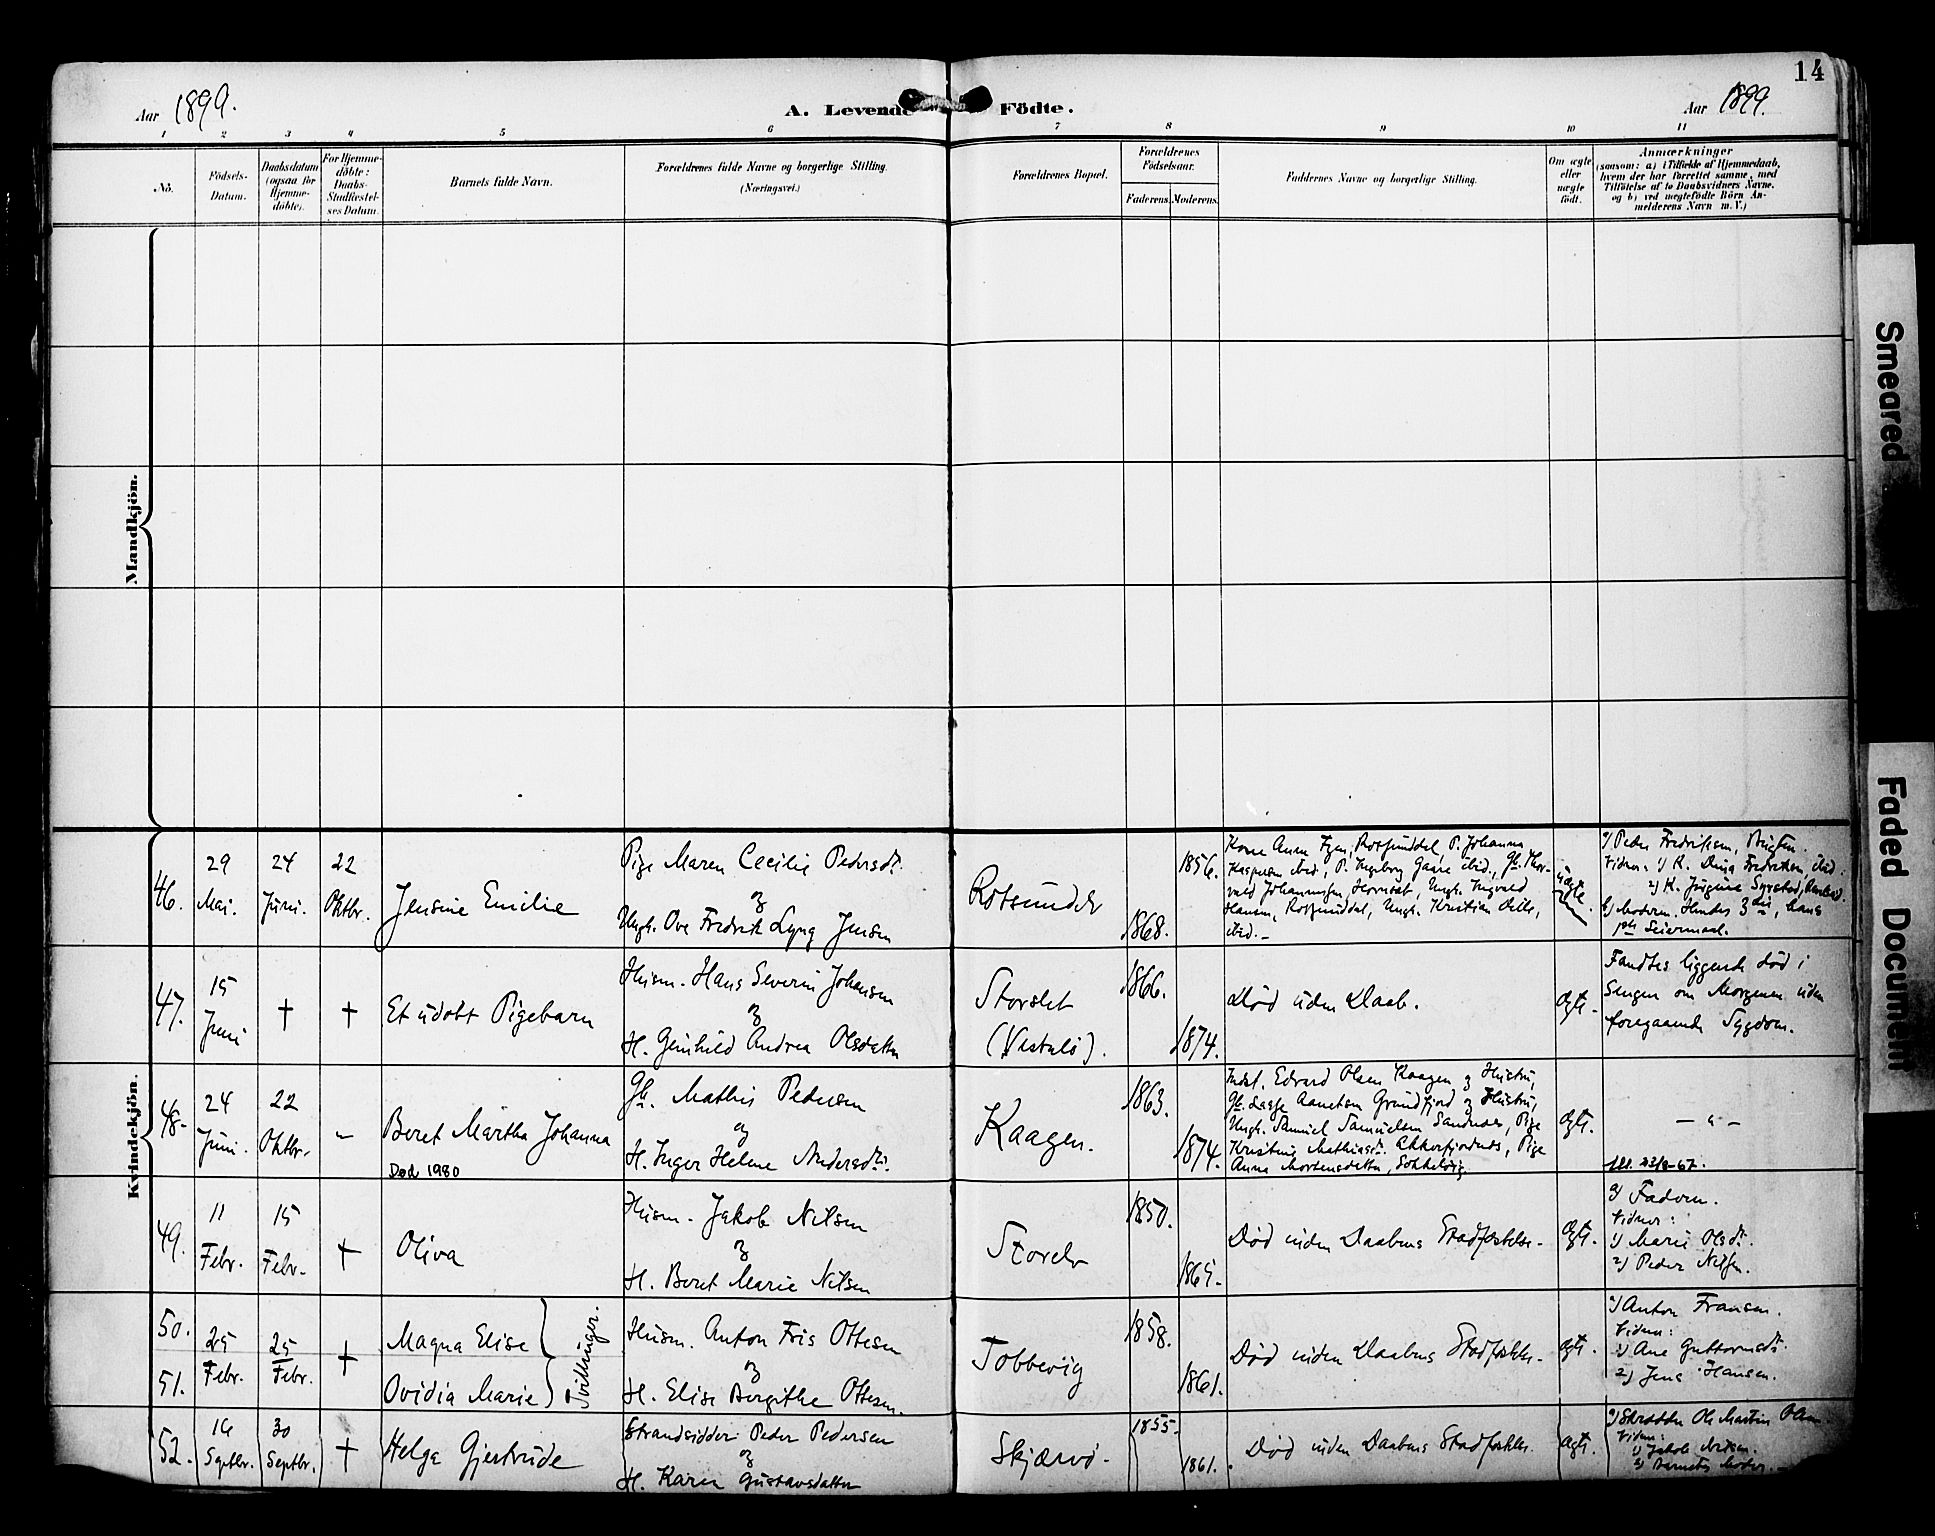 14
Aar 1899.
A. Levende Födte.
Aar 1899.
1 2 3 4 5 6 7 8 9 10 11
No.
Födsels-
Datum.
Daabsdatum
(ogsaa for
Hjemme-
döbte).
For Hjemme-
döbte:
Daabs-
Stadfæstel-
ses Datum.
Barnets fulde Navn.
Forældrenes fulde Navne og borgerlige Stilling.
(Næringsvei.)
Forældrenes Bopæl.
Forældrenes
Födselsaar.
Faderens. Moderens.
Faddernes Navne og borgerlige Stilling.
Om ægte
eller
uægte
födt.
Anmærkninger
(saasom: a) i Tilfælde af Hjemmedaab,
hvem der har forrettet samme, med
Tilföielse af to Daabsvidners Navne.
og b) ved uægtefödte Börn An-
melderens Navn m. V.)
Mandkjön.
Kvindekjön.
46.
29
Mai.
24
Juni.
22
Oktbr.
Jensine Emilie
Pige Maren Cecilie Pedersdtr.
og
Ungk. Ove Fredrik Lyng Jensen
Rotsundelv
1868.
1856.
Kone Anna Rotsunddal, P. Johanna
Kaspersen ibid, P. Ingeborg Gaare ibid., Gb. Thor-
vald Johannesen Ungk. Ingvald
Hansen, Rotsunddal, Ungk. Kristian
ibid.-
uægte.
a) Peder Fredriksen,
Vidner: 1) K. Dina Fredriksen, ibid.
2) K.
b) Moderen. Hendes 3die, hans
1ste Leiermaal.
47.
15
Juni
† †
Et udøbt Pigebarn
Husm. Hans Severin Johansen
og
H. Gunhild Andrea Olsdatter
Storslet
(Maursund).
1866.
1874.
Død uden Daab.
Ægt.
Fandtes liggende død i
Sengen om Morgenen uden
foregaaende Sygdom.
48.
24
Juni.
22
Oktbr.
-
Beret Martha Johanna
Død 1980
Gb. Mathis Pedersen
og
H. Inger Helene Andersdtr.
Kaagen.
1863.
1874.
Indst. Edvard Olsen Kaagen og Hustru,
Gb. Lasse Aanetsen Grundfjord og Hustru,
Ungk. Samuel Samuelsen Sandnes, Pige
Kristine Mathiasdtr. Akkarfjordnes, Pige
Anna Mortensdatter, Sokkelvig
Ægt.
- " -
Utl. 22/8-67.
49.
11
Febr.
15
Febr.
†
Oliva
Husm. Jakob Nilsen
og
H. Beret Marie Nilsen
Storelv
1850.
1865.
Død inden Daabens Stadfæstelse.
Ægt.
a) Faderen.
Vidner:
1) Marie Olsdtr.
2) Peder Nilsen.
50.
51.
25
Febr.
25
Febr.
†
Magna Elise
Ovidia Marie
Tvillinger
Husm. Anton Fris Ottesen
og
H. Elise Bergithe Ottesen.
Tobbevig
1858.
1861.
Død inden Daabens Stadfæstelse.
Ægt.
a) Anton Fransen.
Vidner:
1) Ane Guttormsdtr.
2) Jens Hansen.
52.
16
Septbr.
30
Septbr.
†
Helga Gjertrude
Strandsidder Peder Pedersen
og
H. Karen Gustavsdatter
Skjærvø.
1855.
1861.
Død inden Daabens Stadfæstelse.
Ægt.
a) Skrædder Ole Martin Olsen
Vidner:
1) Jakob Nilsen.
2) Barnets Moder.
Smeared
Faded Document